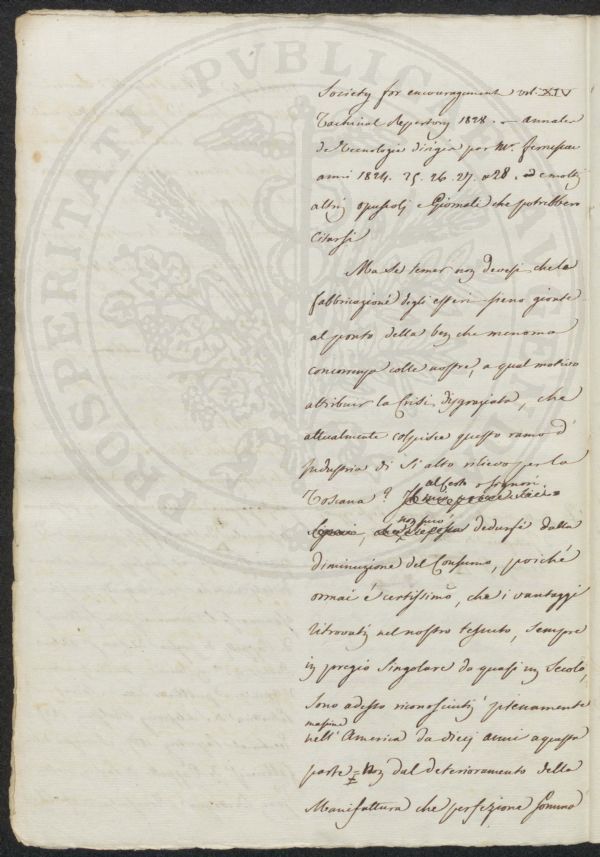 PROSPERITATI PVBLICAE AVGENDAE
Society for encouragement vol. XIV
Technical Repertory 1828. — annales
de Tecnologie dirigia per Mr.
anni 1824. 25. 26. 27. e 28. ed molti
altri opuscoli e Giornali che potrebbero
Citarsi
Ma se temer non devesi che la
fabbricazione degli esteri sieno gionte
al ponto della ben che menoma
concorrenza colle nostre, a qual motivo
attribuir la Crisi disgraziata, che
attualmente colpisce questo ramo d'
Industria di si alto rilievo per la
Toscana?
al certo o Signori
non può dedursi dalla
diminuzione del Consumo, poiché
ormai é certissimo, che i vantaggi
ritrovati nel nostro tessuto, sempre
in pregio singolare da quasi un secolo,
sono adesso riconosciuti pienamente
massime
nell'America da dieci anni a questa
parte = Non dal deterioramento della
Manifattura che perfezione